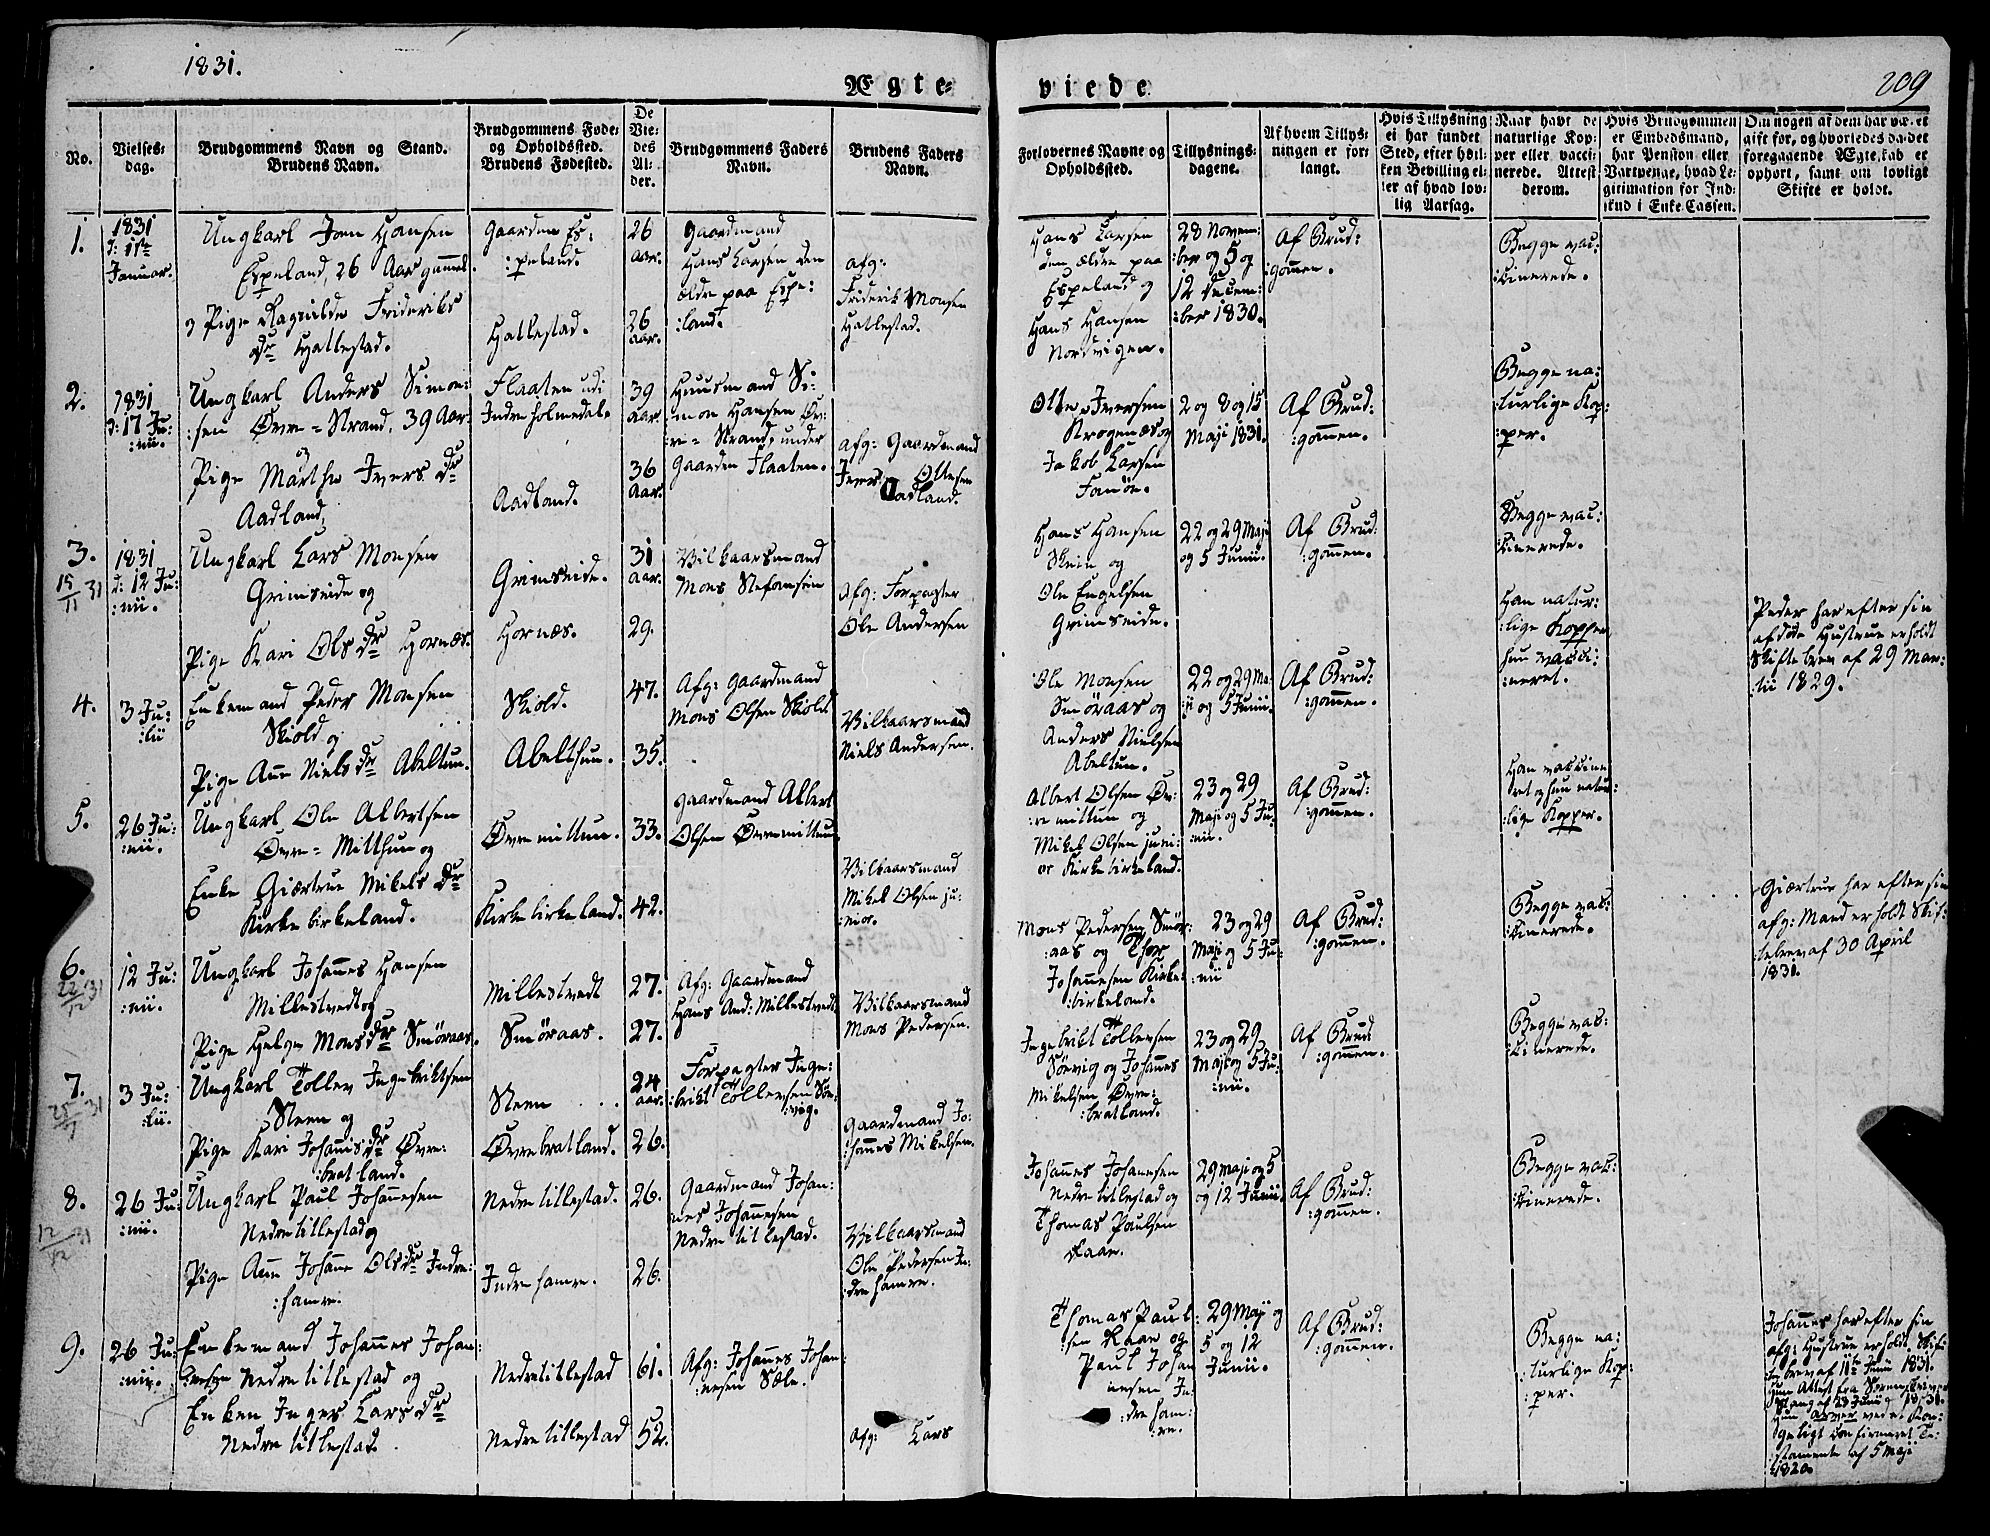 1831.
Ægte-
viede
209
No.
Vielses-
dag.
Brudgommens Navn og Stand.
Brudens Navn.
Brudgommens Føde-
og Opholdssted.
Brudens Fødested.
De
Vie-
des
Al-
der.
Brudgommens Faders
Navn.
Brudens Faders
Navn.
Forlovernes Navne og
Opholdssted.
Tillysnings-
dagene.
Af hvem Tillys-
ningen er for-
langt.
Hvis Tillysning
ei har fundet
Sted, efter hvil-
ken Bevilling el-
ler af hvad lov-
lig Aarsag.
Naar havt de
naturlige Kop-
per eller vacci-
nerede. Attest
derom.
Hvis Brudgommen
er Embedsmand,
har Pension eller
Vartpenge, hvad Le-
gitimation for Ind-
skud i Enke-Cassen.
Om nogen af dem har været
gift før, og hvorledes da det
foregaaende Ægteskab er
ophørt, samt om lovligt
Skifte er holdt.
1.
1831
d: 11te
Januar.
Ungkarl Joen Hansen
Espeland, 26 Aar gammel.
Pige Ragnilde Frideriks
dr Hattestad.
Gaarden Es:
:peland.
Hattestad.
26
Aar.
26
Aar.
Gaardmand
Hans Larsen den
ældre paa Espe:
:land.
afg:
Friderik Monsen
Hattestad.
Hans Larsen
den ældre paa
Espeland og
Hans Hansen
Nordvigen.
28 Novem:
:ber og 5 og
12 Decem:
:ber 1830.
Af Brud:
:gommen.
Begge vac:
:cinerede.
2.
1831
d: 17 Ju:
:nii.
Ungkarl Anders Simon:
:sen Øvre = Strand, 39 Aar.
og
Pige Marthe Ivers dr
Aadland,
Flaaten udi
Indre holmedal.
Aadland.
39
Aar.
36
Aar.
Huusmand Si:
:mon Hansen Øv:
:re = Strand, under
Gaarden Flaaten.
afg: Gaardmand
Iver Ottesen
Aadland.
Otte Iversen
Krogenæs og
Jakob Larsen
Famøe.
2 og 8 og 15
Maji 1831.
Af Brud:
:gommen.
Begge na:
:turlige Kop:
:per.
3.
15/11 31
1831
d: 12 Ju:
:nii.
Ungkarl Lars Monsen
Grimseide og
Pige Kari Ols dr Hornæs.
Grimseide.
Hornæs.
31
Aar.
29.
Vilkaarsmand
Mons Stefansen
Afg: Forpagter
Ole Andersen
Hans Hansen
Stein og
Ole Engelsen
Grimseide.
22 og 29 Maji
og 5 Junii.
Af Brud:
:gommen.
Begge vac:
:cinerede.
4.
3 Ju:
:lii
Enkemand Peder Monsen
Skiold og
Pige Ane Niels dr Abeltun.
Skiold.
Abelthun.
47.
35.
Afg: Gaardmand
Mons Olsen Skiold
Vilkaarsmand
Niels Andersen.
Ole Monsen
Smøraas og
Anders Nielsen
Abeltun.
22 og 29 Ma:
ji og 5 Junii.
Af Brud:
:gommen.
Han natur:
:lige Kopper
hun vacci:
:neret.
Peder har efter sin
afdøde Hustrue erholdt
Skiftebrev af 29 Mar:
:tii 1829.
5.
26 Ju:
:nii.
Ungkarl Ole Albertsen
Øvre = Mitthun og
Enke Giærtrue Mikels dr
Kirkebirkeland.
Øvre mittun.
Kirkebirkeland.
33.
42.
Gaardmand Albert
Olsen Øvremittun
Vilkaarsmand
Mikel Olsen ju:
:nior.
Albert Olsen Øv:
:re mittun og
Mikel Olsen juni:
or Kirkebirkeland.
23 og 29
Maji og 5 Ju:
:nii.
Af Brud:
:gommen.
Han vaccine
ret og hun natur
:lige Kopper.
Giærtrue har efter sin
afg: Mand erholdt Skif:
:tebrev af 30 April
1831.
6.
22/12 31
12 Ju:
:nii.
Ungkarl Johannes Hansen
Millestvedt og
Pige Helge Mons dr Smøraas.
Millestvedt
Smøraas.
27.
27.
Afg: Gaardmand
Hans And: Millestvedt
Vilkaarsmand
Mons Pedersen.
Mons Pedersen Smør:
:aas og Thor
Johannesen Kirke:
:birkeland.
23 og 29
Maji og 5 Ju:
:nii
Af Brud:
:gommen.
Begge vac:
:cinerede.
7.
3 Ju:
:lii.
Ungkarl Tollev Ingebriktsen
Steen og
Pige Kari Johannis dr Øvre:
:bratland.
Steen
Øvrebratland.
24
Aar.
26.
Forpagter Inge:
:brikt Tollevsen Sør:
:vig.
Gaardmand Jo:
:hannes Mikelsen.
Ingebrikt Tollevsen
Sørvig og Johannes
Mikelsen Øvre:
:bratland.
23 og 29
Maji og 5 Ju:
:nii.
Af Brud
:gommen.
Begge vac:
:cinerede.
8.
12/12 31
26 Ju:
:nii.
Ungkarl Paul Johannesen
Nedretitlestad og
Pige Ane Johanne Ols dr Indre:
:hamre.
Nedretitlestad.
Indre hamre.
26.
26.
Gaardmand Johan:
nes Johannesen
Nedre titlestad.
Vilkaarsmand
Ole Pedersen In:
:dre hamre.
Johannes Johannesen
Nedre titlestad og
Thomas Paulsen
Raae.
29 Maji og 5
og 12 Junii.
Af Brud:
:gommen.
Begge vac:
:cinerede.
9.
26 Ju:
:nii.
Enkemand Johannes Johan:
:nesen Nedretitlestad og
Enken Inger Lars dr
Nedretitlestad.
Nedretitlestad
Nedretitlestad
61.
52.
Afg: Johannes Johan:
:nesen Sæle.
Afg: Lars
Thomas Paul:
:sen Raae og
Paul Johan
nesen In:
:dre ham:
:re.
29 Maji og
5 og 12
Junii.
Af Brud:
:gommen.
Begge na:
:turlige Kop:
:per.
Johannes har efter sin
afg: Hustrue erholdt Skif:
:tebrev af 11te Junii 1831.
Hun Attest fra Sorenskriver
af 28 Junii 1831.